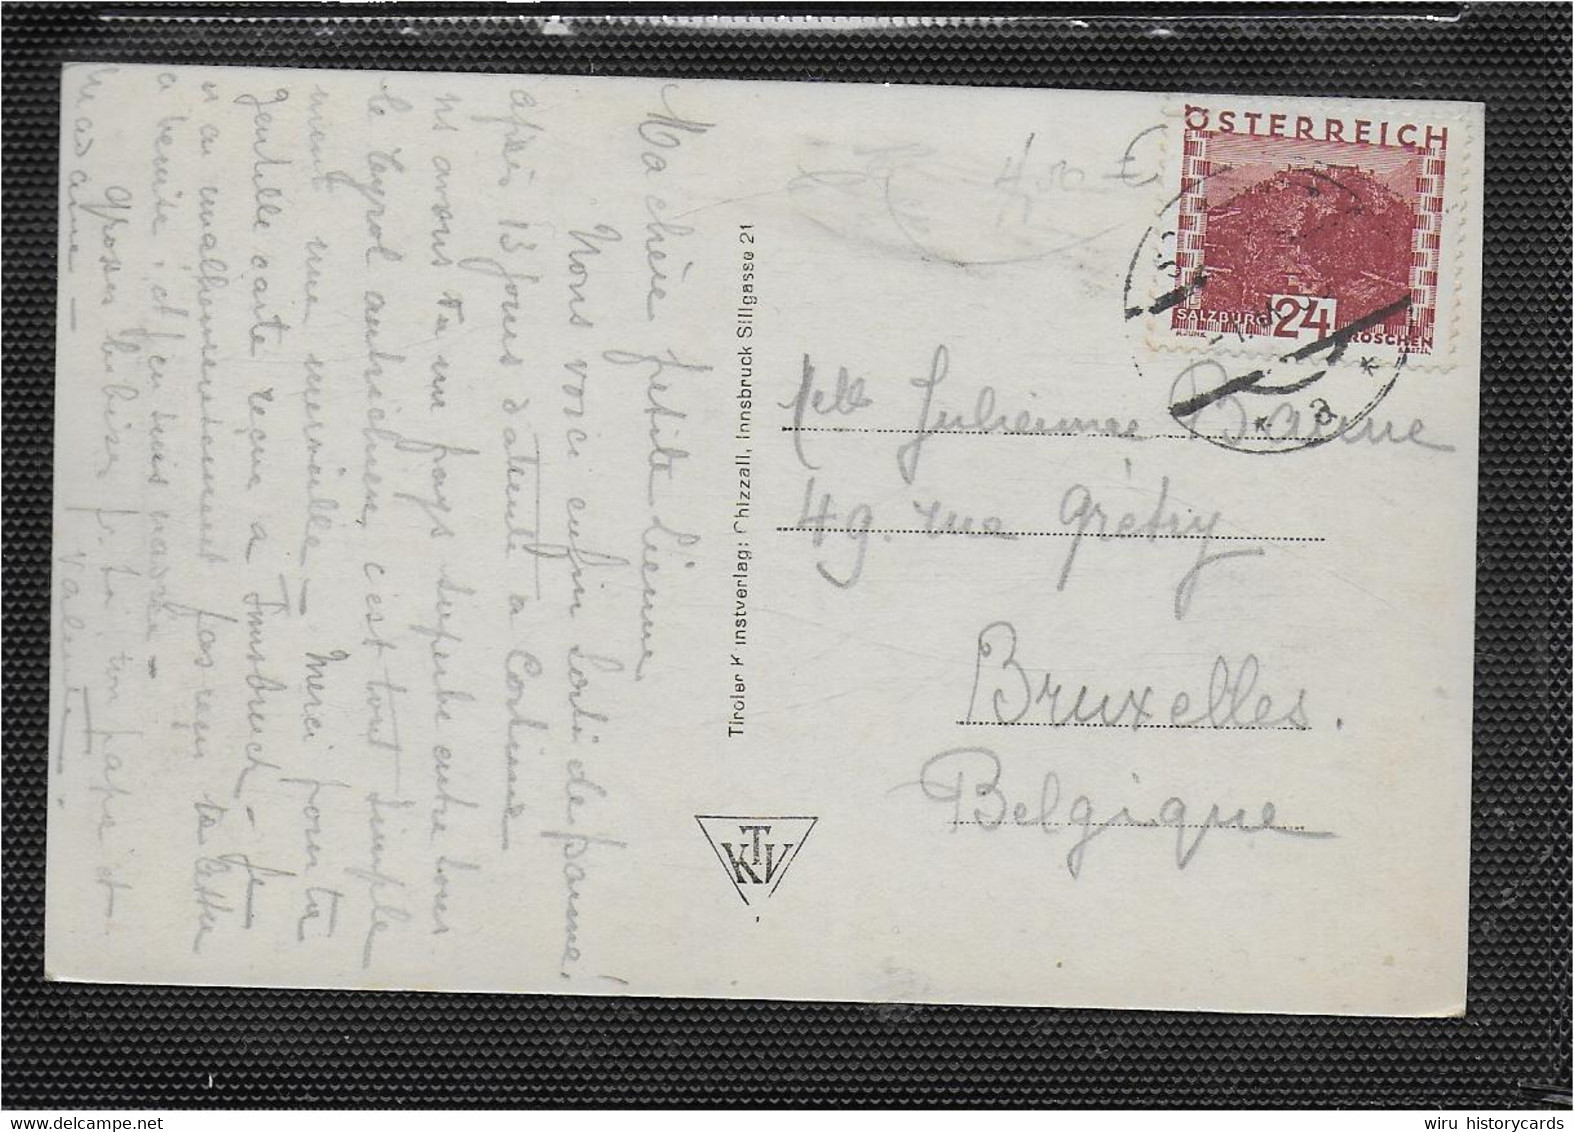 Ma chère petite Lienne
Nous voici enfin sortis de panne!
après 13 jours d'attente a Cortina
ns avons vu un pays superbe entre tous
le Tyrol autrichien, c'est tout simple
ment une merveille — Merci pour ta
gentille carte reçue a Innsbruck — Je
n'ai malheureusement pas reçu ta lettre
a Venise, et j'en suis navrée —
Grosses bises pr toi ton papa et
marraine —
Valente
Tiroler Kunstverlag: Chizzali, Innsbruck Sillgasse 21
KTV
ÖSTERREICH
SALZBURG 24 GROSCHEN
* a *
Mlle Julienne
49. rue Grétry
Bruxelles.
Belgique
wiru historycards
www.delcampe.net